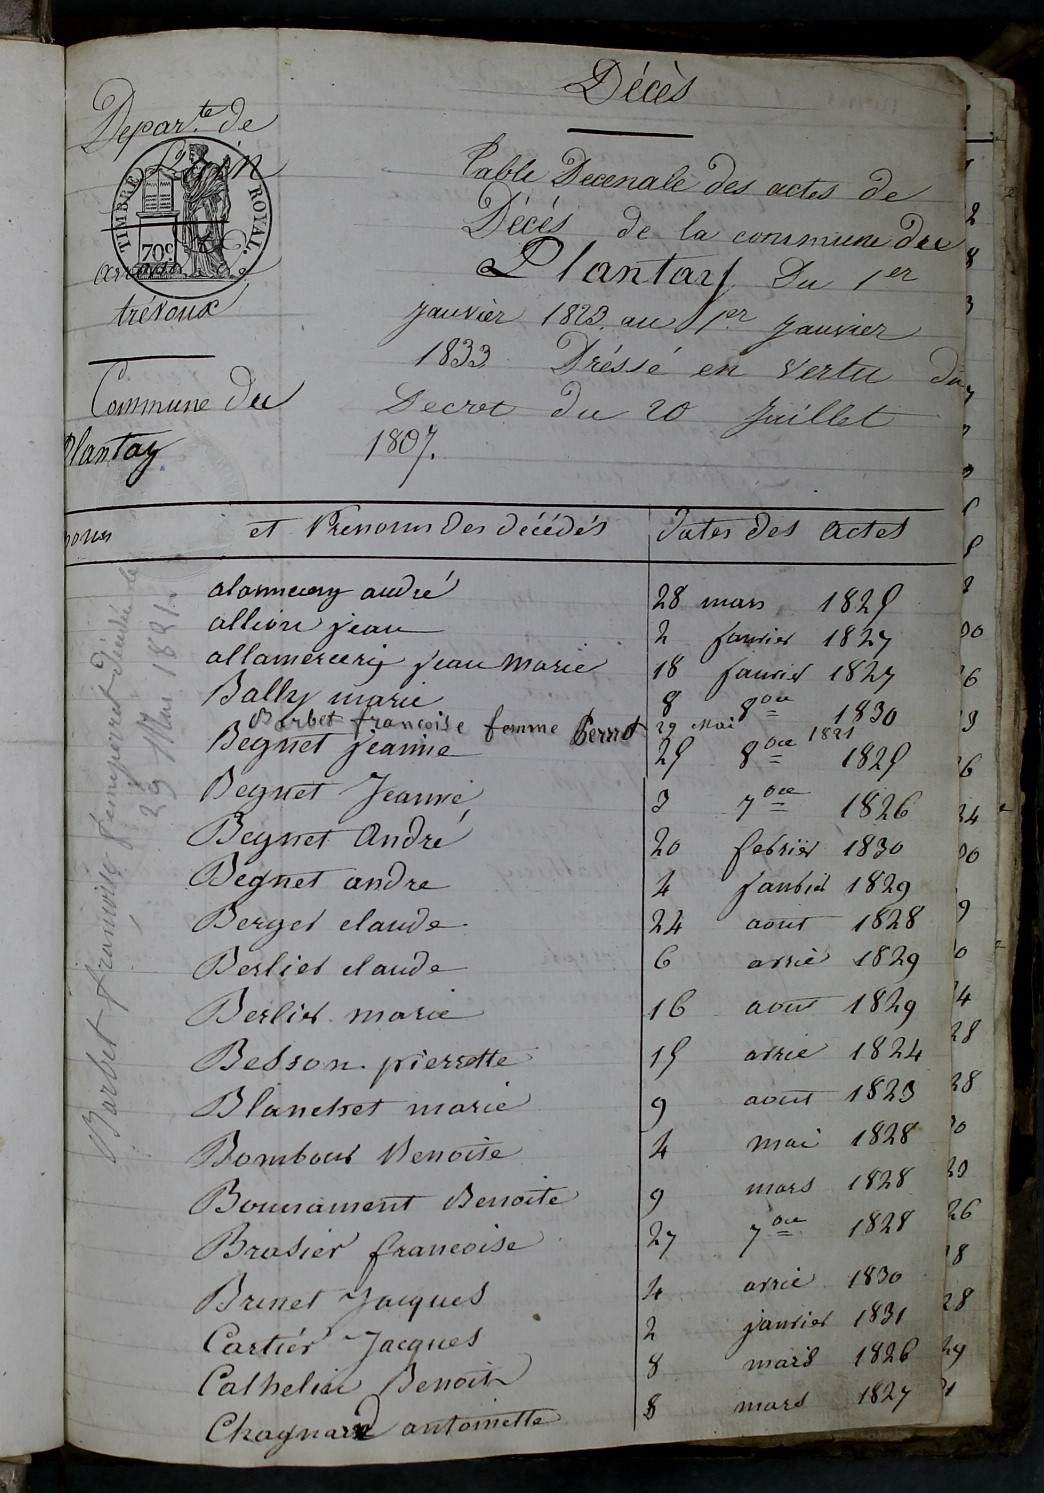 Décès
Depar.te de
l'ain
TIMBRE ROYAL
70c
trévoux
Commune du
Plantay
Table Decenale des actes de
Décés de la commune du
Plantay Du 1er
janvier 1823 au 1er Janvier
1833 Dréssé en Vertu du
Decret du 20 Juillet
1807.
noms et Prenoms des décédés dates des actes
alarmercery andré 28 mars 1825
allion jean 2 janvier 1827
allamercery jean Marie 18 janvier 1827
Bally marie 8 8bre 1830
Barbet francoise femme Perret 29 Mai 1821
Begnet jeanne 25 8bre 1825
Begnet Jeanne 3 7bre 1826
Begnet André 20 febrier 1830
Begnet andre 4 janvier 1829
Berger claude 24 aout 1828
Berlier claude 6 avril 1829
Berlier marie 16 aout 1829
Besson pierrette 15 avril 1824
Blanchet marie 9 aout 1823
Bombour Benoite 4 mai 1828
Bournament Benoite 9 mars 1828
Brasier francoise 27 7bre 1828
Brunet Jacques 4 avril 1830
Cartiér Jacques 2 janvier 1831
Cathelin Benoit 8 mars 1826
Chagnard antoinette 8 mars 1827
Barbet françoise décédée le
29 Mars 1821.